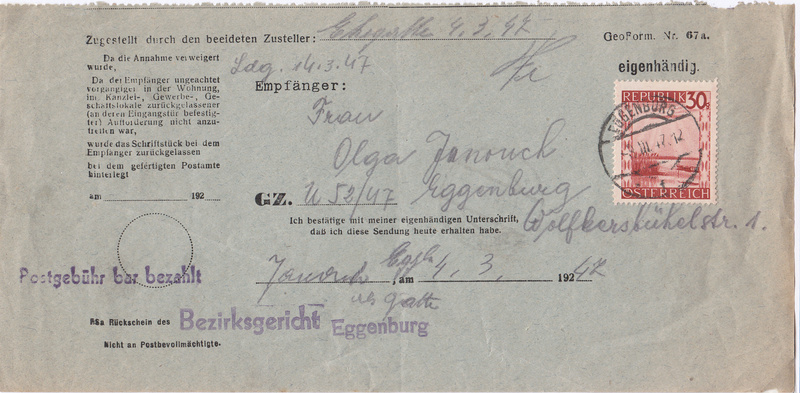 Zugestellt durch den beeideten Zusteller: 4.3.47
GeoForm. Nr. 67a.
eigenhändig.
Da die Annahme verweigert
wurde,
Da der Empfänger ungeachtet
vorgängiger in der Wohnung,
im Kanzlei-, Gewerbe-, Ge-
schäftslokale zurückgelassener
(an deren Eingangstür befestig-
ter) Aufforderung nicht anzu-
treffen war,
wurde das Schriftstück bei dem
Empfänger zurückgelassen
bei dem gefertigten Postamte
hinterlegt
am 192
Ldg. 14.3.47
Empfänger:
Frau
Olga Janouch
GZ. U 52/47 Eggenburg
Wolfkersbühelstr. 1.
REPUBLIK 30g
EGGENBURG
III. 47.12
ÖSTERREICH
Ich bestätige mit meiner eigenhändigen Unterschrift,
daß ich diese Sendung heute erhalten habe.
Postgebühr bar bezahlt
Janouch, am 4. 3. 192 47
als Gatte
RSa Rückschein des Bezirksgericht Eggenburg
Nicht an Postbevollmächtigte.